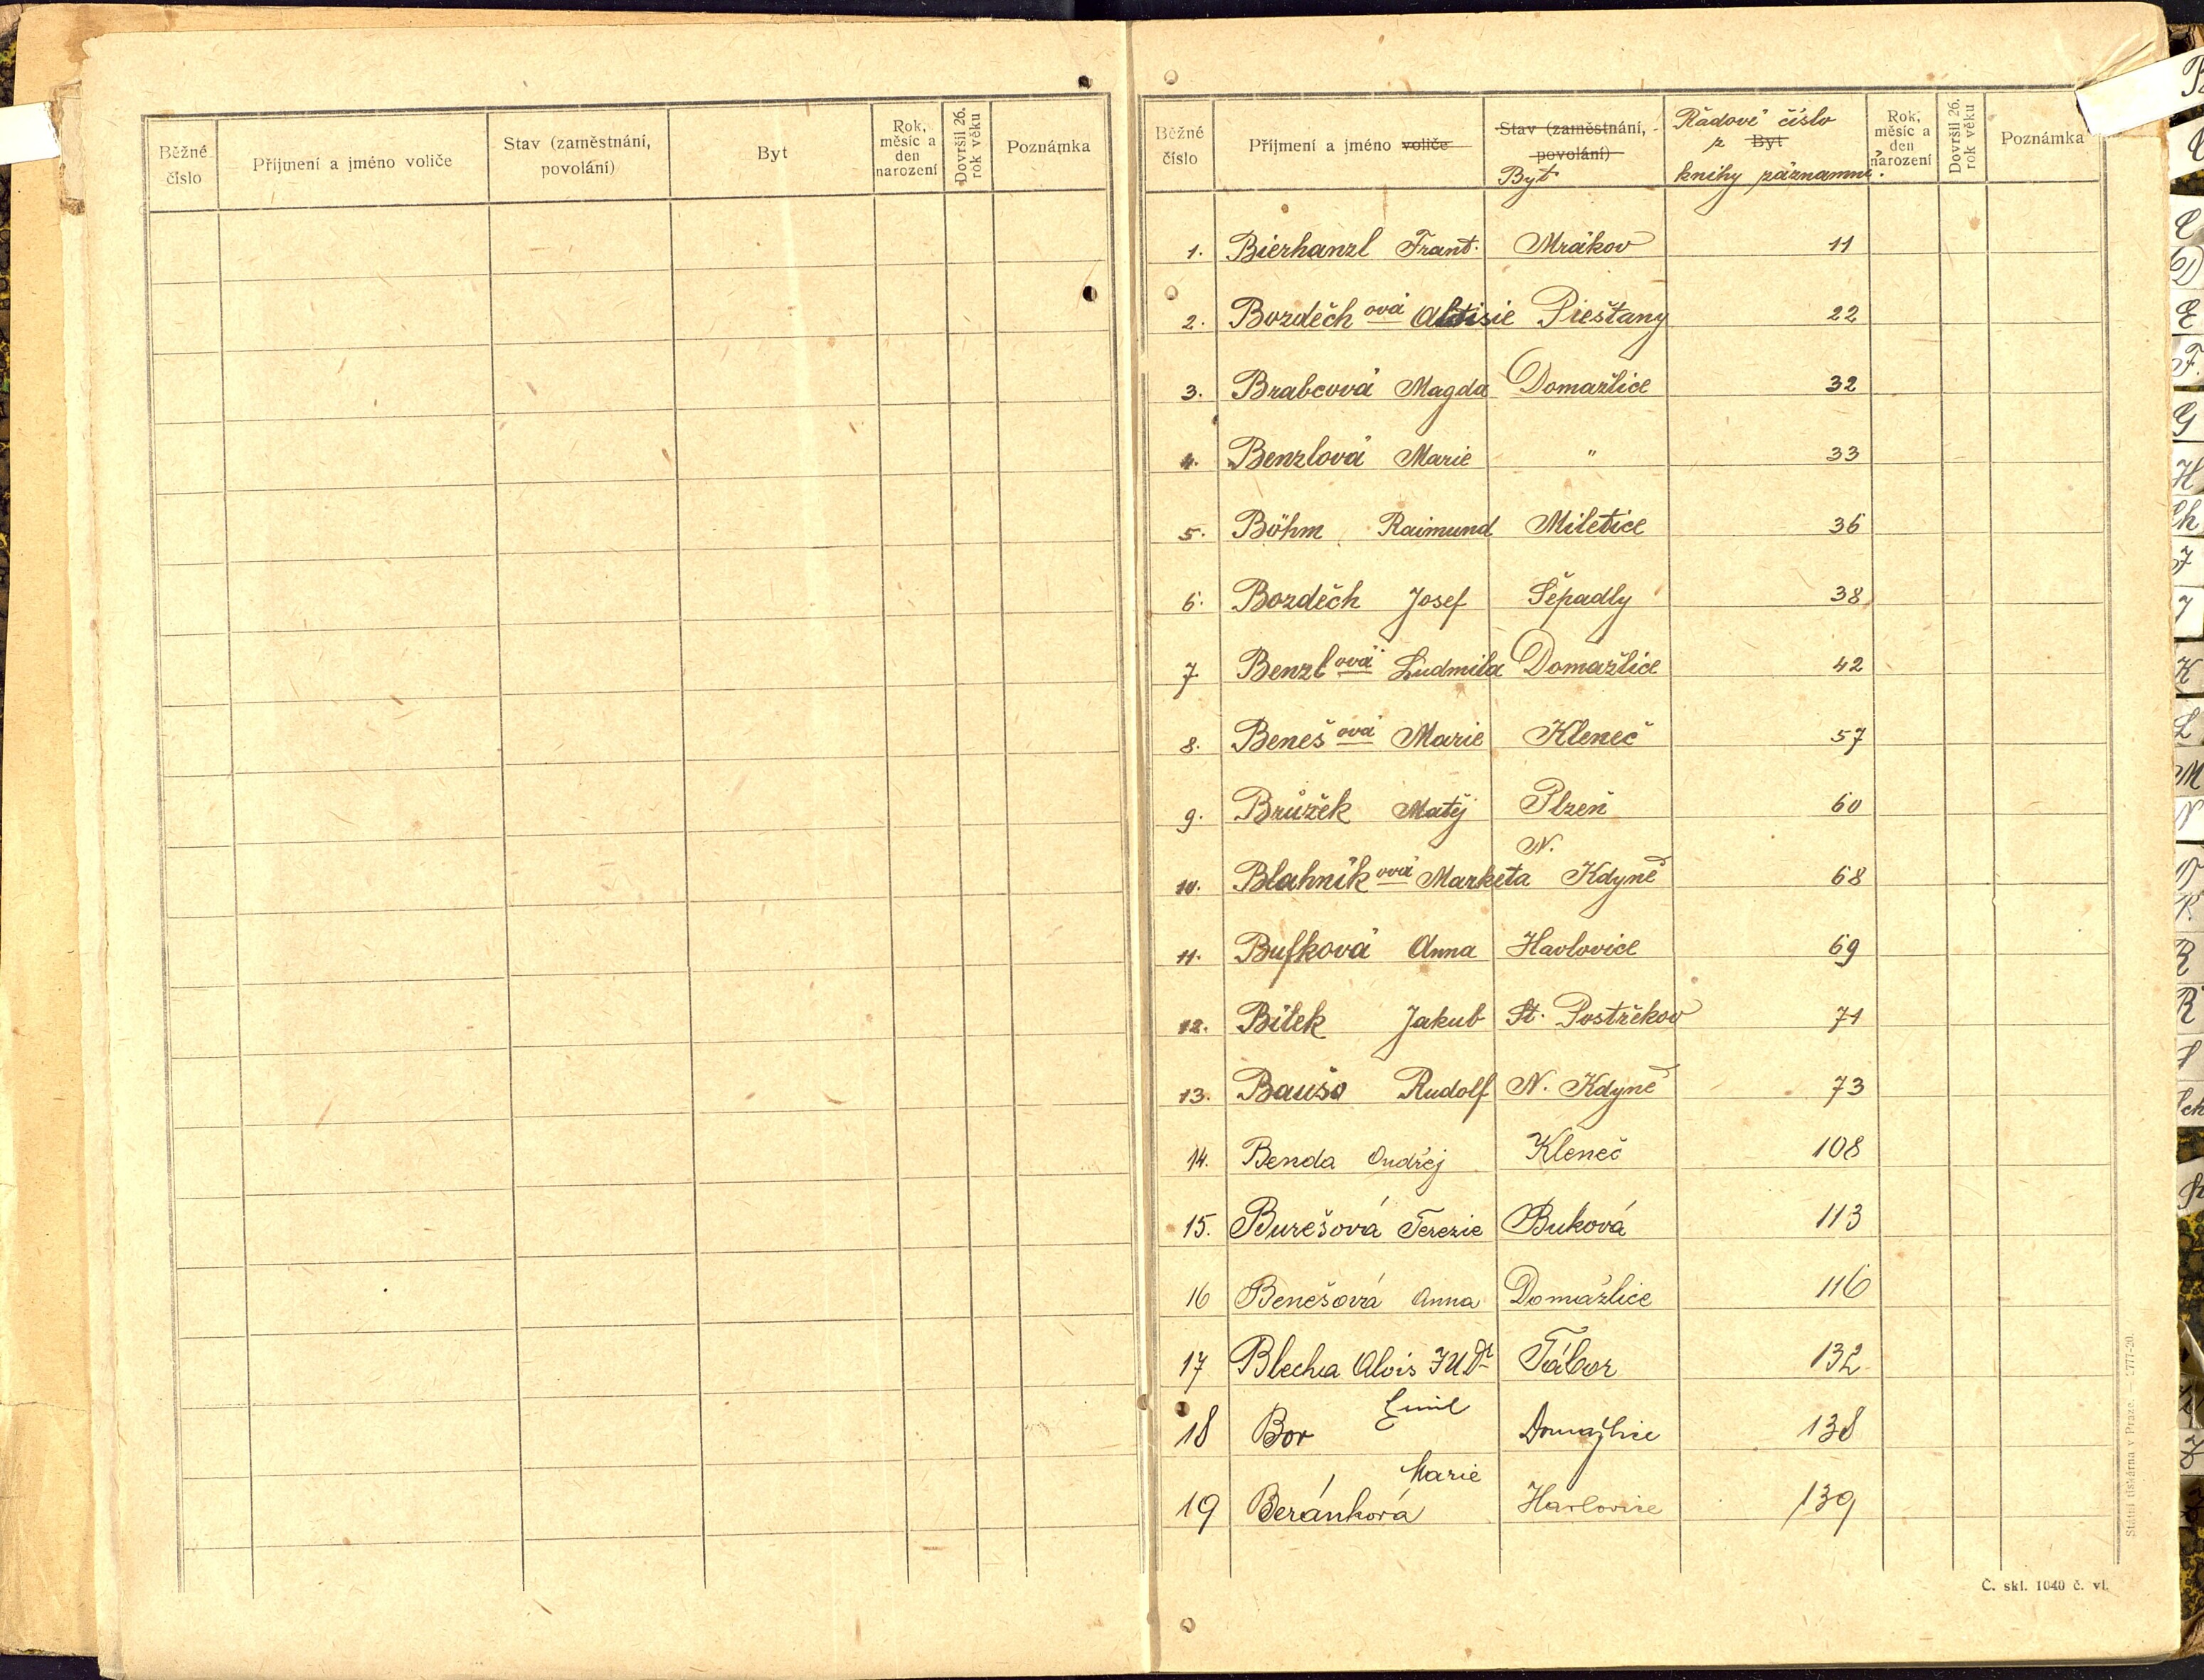 Běžné číslo | Příjmení a jméno voliče | Stav (zaměstnání, povolání) | Byt | Rok, měsíc a den narození | Dovršil 26. rok věku | Poznámka
Běžné číslo | Příjmení a jméno voliče | Stav (zaměstnání, povolání) Byt | Řadové číslo z Byt knihy záznamní. | Rok, měsíc a den narození | Dovršil 26. rok věku | Poznámka
1. Bierhanzl Frant. Mrákov 11
2. Bozděchová Aloisie Piešťany 22
3. Brabcová Magda Domažlice 32
4. Benzlová Marie " 33
5. Böhm Raimund Miletice 36
6. Bozděch Josef Šepadly 38
7 Benzlová Ludmila Domažlice 42
8. Benešová Marie Kleneč 57
9. Brůžek Matěj Plzeň 60
10. Blahníková Marketa N. Kdyně 68
11. Bufková Anna Havlovice 69
12. Bílek Jakub St. Postřekov 71
13. Baušo Rudolf N. Kdyně 73
14. Benda Ondřej Kleneč 108
15. Burešová Terezie Buková 113
16 Benešová Anna Domažlice 116
17 Blecha Alois JUDr Tábor 132
18 Bor Emil Domažlice 138
19 Beránková Marie Havlovice 139
Státní tiskárna v Praze. — 2777-20.
Č. skl. 1040 č. vl.
B
C
Č
D
E
F.
G
H
Ch
I
J
K
L
M
N
O
P.
R
Ř
S
Sch
Z